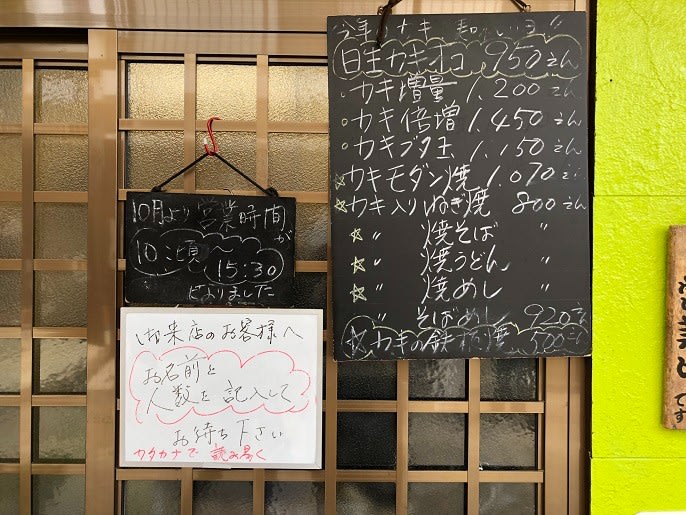 今年もカキ
日生カキオコ 950えん
カキ増量 1,200えん
カキ倍増 1,450えん
カキブタ玉 1,150えん
カキモダン焼 1,070えん
カキ入りねぎ焼 800えん
〃 焼そば 〃
〃 焼うどん 〃
〃 焼めし 〃
〃 そばめし 920えん
カキの鉄板焼 500えん
10月より営業時間が
10頃〜15:30
になりました
御来店のお客様へ
お名前と
人数を記入して
お待ち下さい
カタカナで読み易く
です